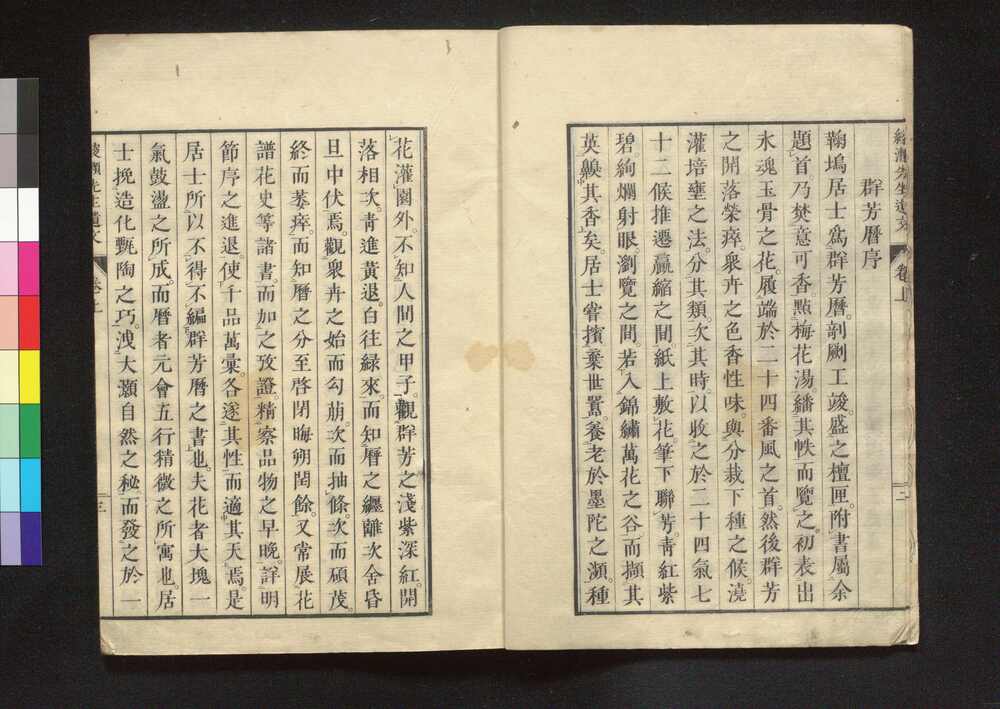 先生遺文
卷上
二
群芳曆序
鞠塢居士爲群芳曆。剞劂工竣。盛之檀匣。附書屬余
題首。乃焚意可香。點梅花湯。繙其帙而覽之。初表出
氷魂玉骨之花。履端於二十四番風之首。然後群芳
之開落榮瘁。衆卉之色香性味。與分栽下種之候。澆
灌培壅之法。分其類。次其時。以收之於二十四氣七
十二候推遷贏縮之間。紙上敷花。筆下聯芳。靑紅紫
碧絢爛射眼。瀏覽之間。若入錦繡萬花之谷而擷其
英𩜙其香矣。居士嘗擯棄世囂。養老於墨陀之瀕。種
花灌園外。不知人間之甲子。觀群芳之淺紫深紅。開
落相次。靑進黃退。白往綠來。而知曆之纏離次舍昏
旦中伏焉。觀衆卉之始而勾萠。次而抽條。次而碩茂。
終而萎瘁。而知曆之分至啓閉晦朔閏餘。又常展花
譜花史等諸書。而加之攷證。精察品物之早晩。詳明
節序之進退。使千品萬彙。各遂其性而適其天焉。是
居士所以不得不編群芳曆之書也。夫花者大塊一
氣鼓盪之所成。而曆者元會五行精微之所寓也。居
士挽造化甄陶之巧。洩大灝自然之秘。而發之於一
先生遺文
卷上
三